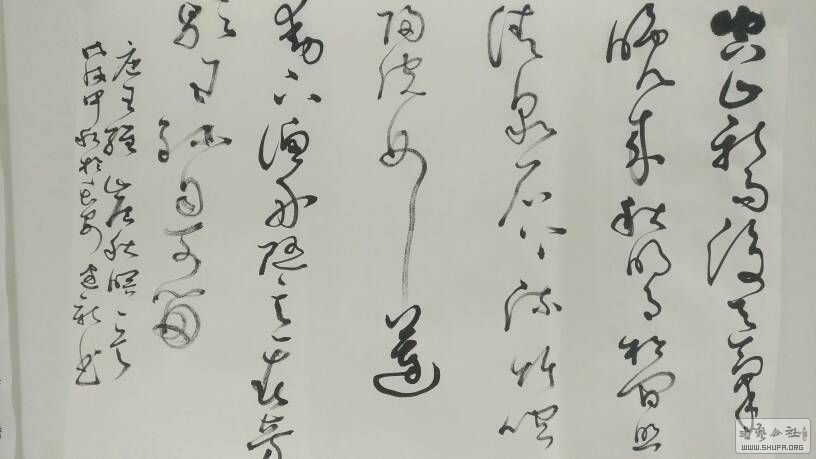 空山新雨後天氣
晚来秋明月松間照
清泉石上流竹喧
歸浣女蓮
動下渔舟随意春芳
歇王孫自可留
唐王維山居秋暝
戊戌中秋於長安 新书
书艺公社
WWW.SHUFA.ORG